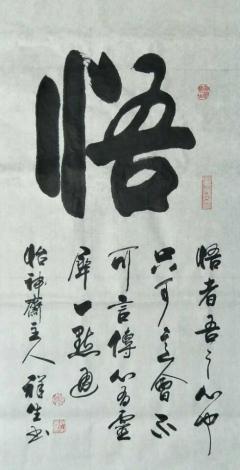 悟
悟者吾之心也
只可意會不
可言傳心有靈
犀一點通
怡神齋主人祥生书